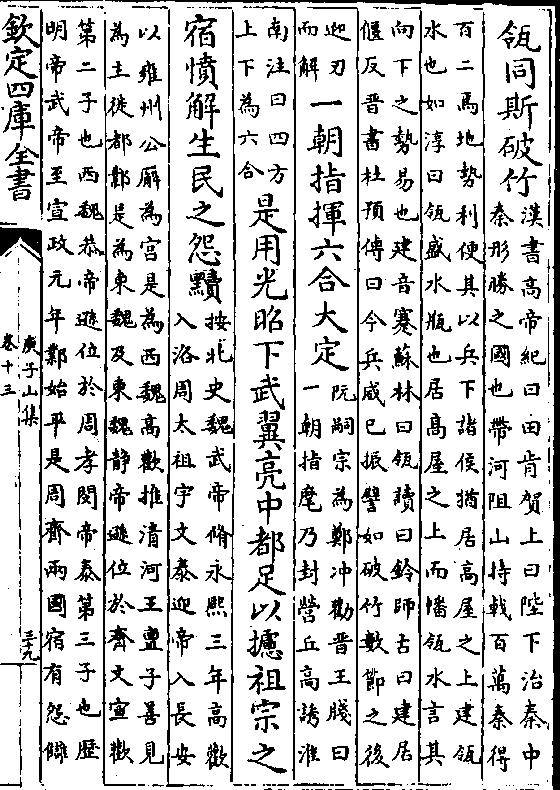 瓴同斯破竹
漢書高帝紀曰由肯賀上曰陛下治秦中
秦形勝之國也帶河阻山持戟百萬秦得
百二焉地勢利便其以兵下諸侯猶居高屋之上建瓴
水也如淳曰瓴盛水瓶也居高屋之上而幡瓴水言其
向下之勢易也建音蹇蘇林曰瓴讀曰鈴師古曰建居
偃反晉書杜預傳曰今兵威已振譬如破竹數節之後
迎刃
而解
一朝指揮六合大定
阮嗣宗為鄭冲勸晉王牋曰
一朝指麾乃封營丘高誘淮
南注曰四方
上下為六合
是用光昭下武翼亮中都足以攄祖宗之
宿憤解生民之怨黷
按北史魏武帝脩永熙三年高歡
入洛周太祖宇文泰迎帝入長安
以雍州公廨為宮是為西魏高歡推清河王亶子善見
為主徙都鄴是為東魏及東魏静帝遜位於齊文宣歡
第二子也西魏恭帝遜位於周孝閔帝泰第三子也歷
明帝武帝至宣政元年鄴始平是周齊兩國宿有怨讎
欽定四庫全書
庾子山集
卷十三
三九